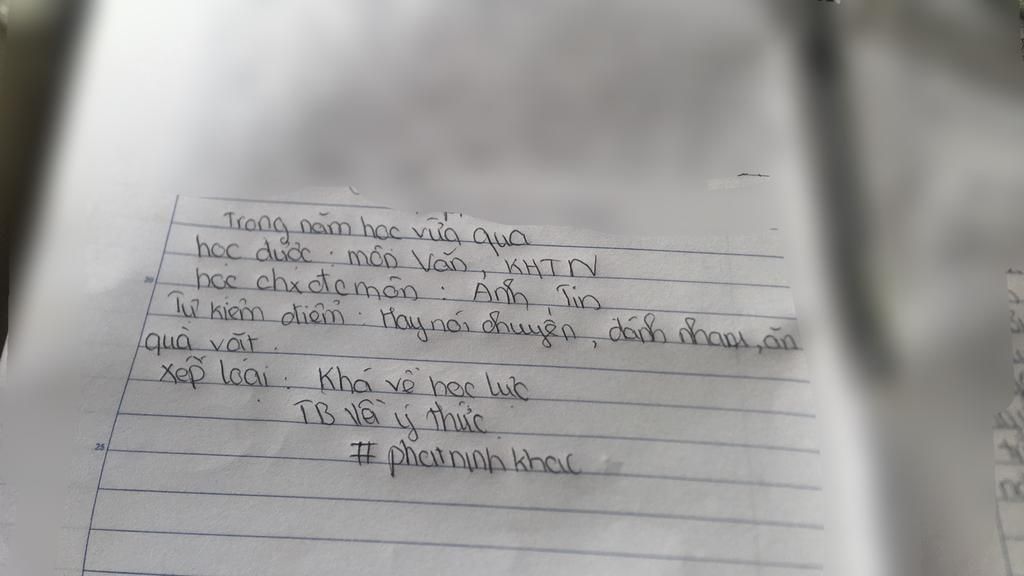 Trong năm học vừa qua
học được : môn Văn, KHTN
học chx đc môn : Anh, Tin
Tự kiểm điểm : Hay nói chuyện, đánh nhau, ăn
quà vặt.
xếp loại : Khá về học lực
TB về ý thức
25